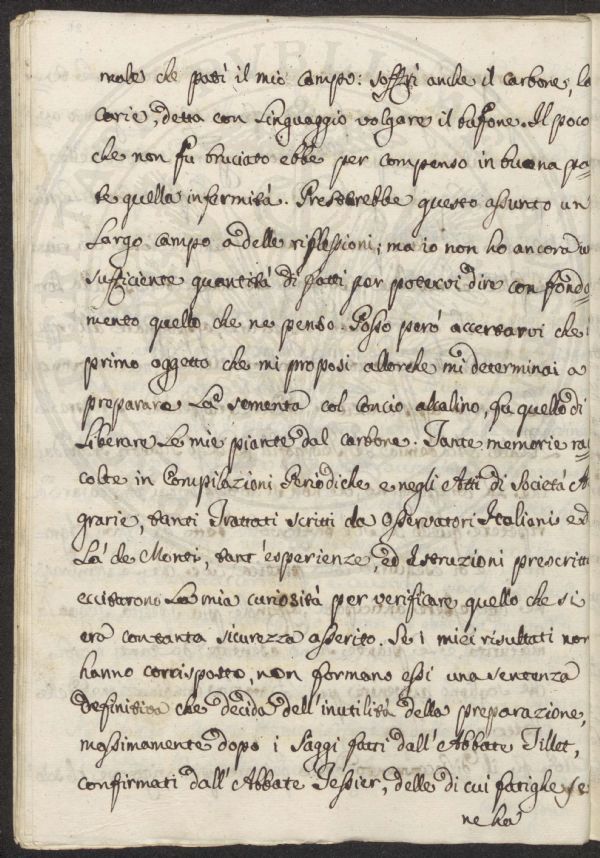 male che patì il mio campo: soffrì anche il carbone, la
carie, detta con linguaggio volgare il bufone. Il poco
che non fu bruciato ebbe per compenso in buona pa-
te quella infermità. Presterebbe questo assunto un
largo campo a delle riflessioni; ma io non ho ancora
sufficiente quantità di fatti per potervi dire con fonda-
mento quello che ne penso. Posso però accertarvi che
primo oggetto che mi proposi allorchè mi determinai a
preparare la sementa col concio alcalino, fu quello di
liberare le mie piante dal carbone. Tante memorie rac-
colte in Compilazioni Periodiche e negli Atti di Società A-
grarie, tanti Trattati scritti da Osservatori Italiani ed
Là de Monti, tant' esperienze, ed Istruzioni prescritte
eccitarono la mia curiosità per verificare quello che si
era con tanta sicurezza asserito. Se i miei risultati non
hanno corrisposto, non formano essi una sentenza
definitiva che decida dell' inutilità della preparazione,
massimamente dopo i saggi fatti dall' Abbate Tillet,
confirmati dall' Abbate Tessier, delle di cui fatighe se
ne ha